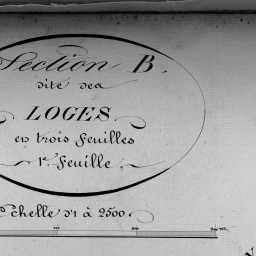 Section B.
dite des
LOGES
en trois feuilles
1re feuille.
Echelle d'1 à 2500.